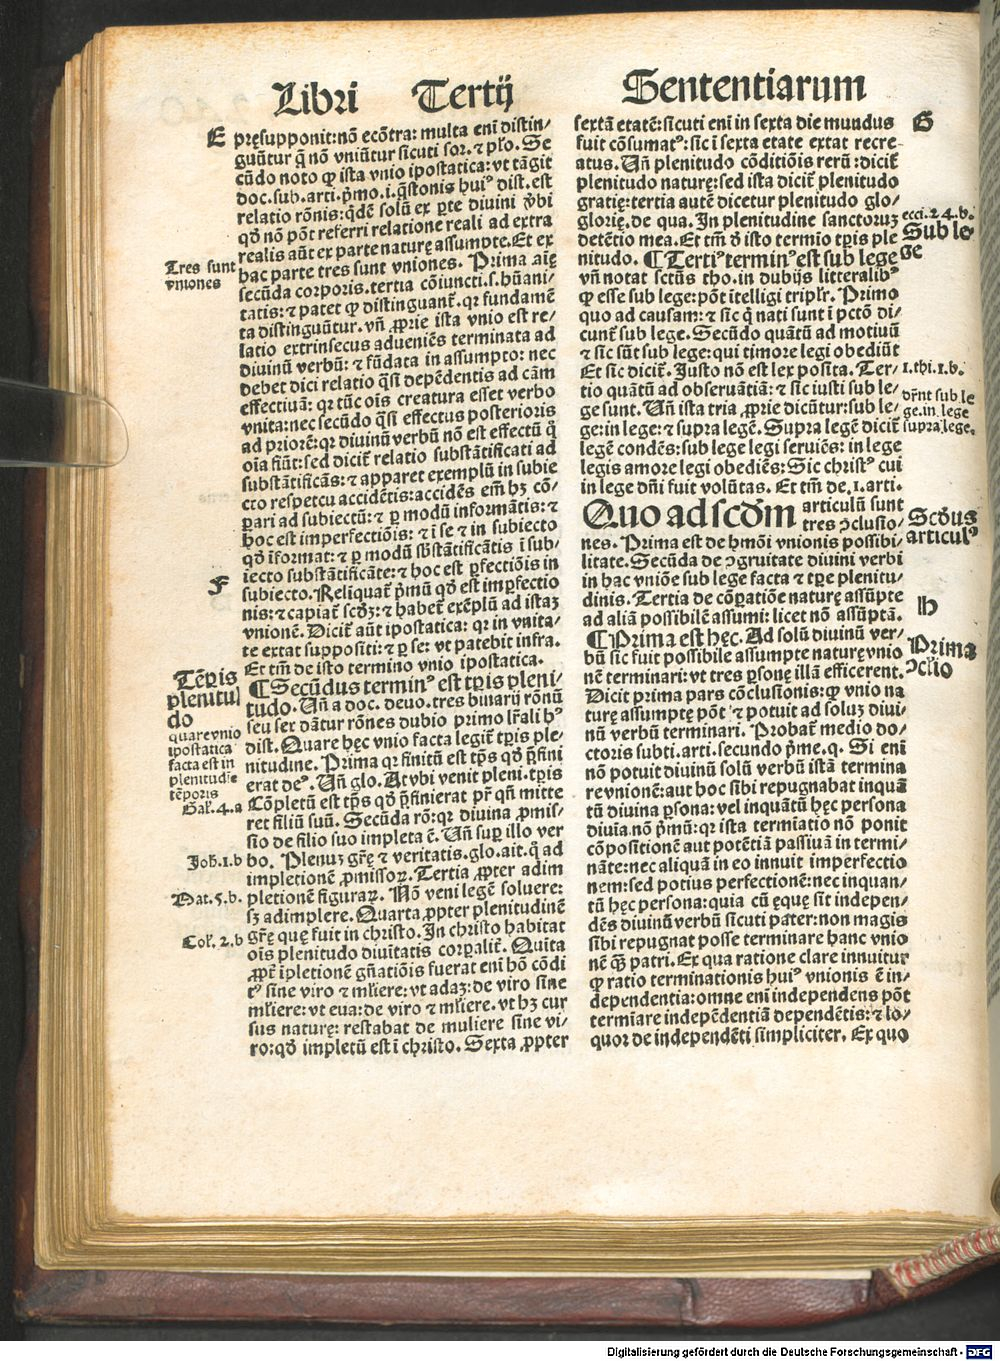 Libri Tertij Sententiarum
E
pręsupponit: nõ ecõtra: multa eni distin⸗
guũtur q̃ nõ vniũtur sicuti sor. ⁊ plo. Se
cũdo noto ꝙ ista vnio ipostatica: vt tãgit
doc. sub. arti. pͥmo. i. q̃stonis huiꝰ dist. est
relatio rõnis: qdẽ solũ ex ꝑte diuini v̓bi
qđ nõ põt referri relatione reali ad extra
realis aũt ex parte naturę assumpte. Et ex
hac parte tres sunt vniones. Prima aię
secũda corporis. tertia cõiuncti. s. hũani⸗
tatis: ⁊ patet ꝙ distinguant̃. qr fundamẽ
ta distinguũtur. vñ ꝓprie ista vnio est re⸗
latio extrinsecus adueniẽs terminata ad
diuinũ verbũ: ⁊ fũdata in assumpto: nec
debet dici relatio q̃si depẽdentis ad cãm
effectiuã: qr tũc oĩs creatura esset verbo
vnita: nec secũdo q̃si effectus posterioris
ad priorẽ: qr diuinũ verbũ nõ est effectũ q̃
oĩa fiũt: sed dicit̃ relatio substãtificati ad
substãtificãs: ⁊ apparet exemplũ in subie
cto respetcu accidẽtis: accidẽs em̃ hʒ cõ⸗
ꝑari ad subiectũ: ⁊ ꝑ modũ informãtis: ⁊
hoc est imperfectiõis: ⁊ i se ⁊ in subiecto
qđ iformat: ⁊ ꝑ modũ sb̃stãtificãtis i sub⸗
iecto substãtificãte: ⁊ hoc est ꝑfectiõis in
subiecto. Reliquat̃ pͥmũ qđ est imꝑfectio
nis: ⁊ capiat̃ scđʒ: ⁊ habet̃ exẽplũ ad istaʒ
vnionẽ. Dicit̃ aũt ipostatica: qr in vnita⸗
te extat suppositi: ⁊ ꝑ se: vt patebit infra.
Et tm̃ de isto termino vnio ipostatica.
¶ Secũdus terminꝰ est tꝑis pleni⸗
tudo. Uñ a doc. deuo. tres binarij rõnũ
seu sex dãtur rõnes dubio primo lr̃ali hꝰ
dist. Quare hęc vnio facta legit̃ tꝑis ple⸗
nitudine. Prima qr finitũ est tp̃s qđ p̃fini
erat deꝰ. Uñ glo. At vbi venit pleni. tꝑis
Cõpletũ est tp̃s qđ p̃finierat pr̃ qñ mitte
ret filiũ suũ. Secũda rõ: qr diuina ꝓmis⸗
sio de filio suo impleta ẽ. Uñ suꝑ illo ver
bo. Plenuʒ gr̃ę ⁊ veritatis. glo. ait. q̃ ad
impletionẽ ꝓmissoꝝ. Tertia ꝓpter adim
pletionẽ figuraꝝ. Nõ veni legẽ soluere:
sʒ adimplere. Quarta ꝓpter plenitudinẽ
gr̃ę quę fuit in christo. In christo habitat
oĩs plenitudo diuĩtatis corꝑalit̃. Quita
ꝓpt̃ ipletionẽ gñatiõis fuerat eni hõ cõdi
tꝰ sine viro ⁊ ml̃iere: vt adaʒ: de viro sine
ml̃iere: vt eua: de viro ⁊ ml̃iere. vt hʒ cur
sus naturę: restabat de muliere sine vi⸗
ro: qđ impletũ est i christo. Sexta ꝓpter
Tres sunt
vniones
F
Tẽꝑis
plenitu
do
quare vnio
ipostatica
facta est in
plenitudie
tẽporis
Gal̃. 4. a
Joh̃. 1. b
Mat. 5. b.
Col̃. 2. b
sextã etatẽ: sicuti eni in sexta die mundus
fuit cõsumatꝰ: sic i sexta etate extat recre⸗
atus. Uñ plenitudo cõditiõis rerũ: dicit̃
plenitudo naturę: sed ista dicit̃ plenitudo
gratię: tertia autẽ dicetur plenitudo glo⸗
glorię. de qua. In plenitudine sanctoruʒ
detẽtio mea. Et tm̃ đ isto termio tꝑis ple
nitudo. ¶ Tertiꝰ terminꝰ est sub lege
vñ notat sctũs tho. in dubijs litteralibꝰ
ꝙ esse sub lege: põt itelligi triplr̃. Primo
quo ad causam: ⁊ sic q̃ nati sunt i pctõ di⸗
cunt̃ sub lege. Secũdo quãtũ ad motiuũ
⁊ sic sũt sub lege: qui timore legi obediũt
Et sic dicit̃. Justo nõ est lex posita. Ter⸗
tio quãtũ ad obseruãtiã: ⁊ sic iusti sub le⸗
ge sunt. Uñ ista tria ꝓprie dicũtur: sub le⸗
ge: in lege: ⁊ supra legẽ. Supra legẽ dicit̃
legẽ condẽs: sub lege legi seruiẽs: in lege
legis amore legi obediẽs: Sic christꝰ cui
in lege dñi fuit volũtas. Et tm̃ de. 1. arti.
Quo ad scđm articulũ sunt
tres ↄclusio⸗
nes. Prima est de hmõi vnionis possibi⸗
litate. Secũda de ↄgruitate diuini verbi
in hac vniõe sub lege facta ⁊ tꝑe plenitu⸗
dinis. Tertia de cõꝑatiõe naturę assũpte
ad aliã possibilẽ assumi: licet nõ assũptã.
¶ Prima est hęc. Ad solũ diuinũ ver⸗
bũ sic fuit possibile assumpte naturę vnio
nẽ terminari: vt tres ꝑsonę illã efficerent.
Dicit prima pars cõclusionis: ꝙ vnio na
turę assumptę põt ⁊ potuit ad soluʒ diui⸗
nũ verbũ terminari. Probat̃ medio do⸗
ctoris subti. arti. secundo pͥme. q. Si eni
nõ potuit diuinũ solũ verbũ istã termina
re vnionẽ: aut hoc sibi repugnabat inquã
tũ diuina ꝑsona: vel inquãtũ hęc persona
diuia. nõ pͥmũ: qr ista termiatio nõ ponit
cõpositionẽ aut potẽtiã passiuã in termi⸗
nãte: nec aliquã in eo innuit imperfectio
nem: sed potius perfectionẽ: nec inquan⸗
tũ hęc persona: quia cũ ęque sit indepen⸗
dẽs diuinũ verbũ sicuti pater: non magis
sibi repugnat posse terminare hanc vnio
nẽ q̃ʒ patri. Ex qua ratione clare innuitur
ꝙ ratio terminationis huiꝰ vnionis ẽ in⸗
dependentia: omne eni independens põt
termiare indepẽdentiã dependẽtis: ⁊ lo⸗
quor de independẽti simpliciter. Ex quo
G
ecci. 24. b.
Sub le
ge
1. thi. 1. b.
dr̃nt sub le
ge. in lege
supra lege.
Scđus
articulꝰ
h
Prima
ↄclio
Digitalisierung gefördert durch die Deutsche Forschungsgemeinschaft - DFG